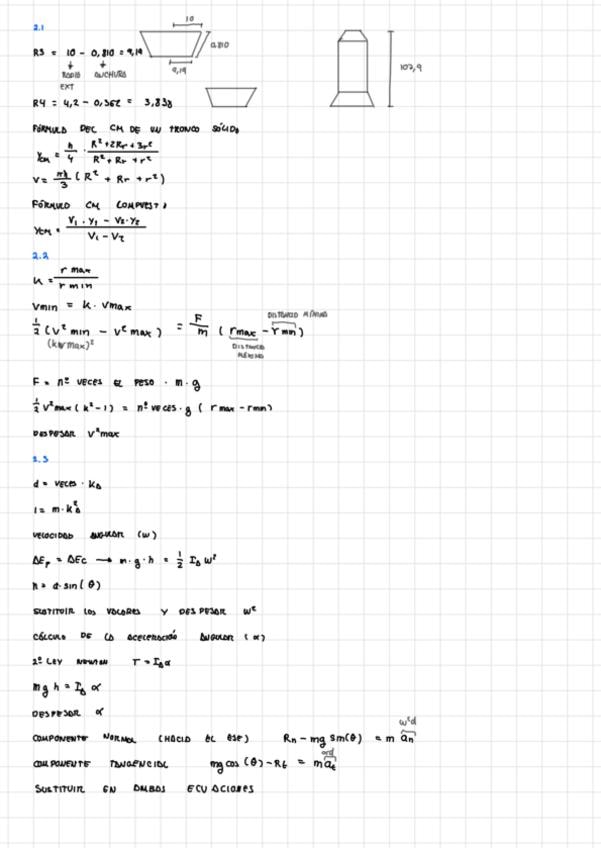 2.1
10
R3 = 10 - 0,810 = 9,19
0,810
RADIO ANCHURA
EXT
9,19
107,9
R4 = 4,2 - 0,362 = 3,838
FÓRMULA DEL CM DE UN TRONCO SÓLIDO
Y_CM = h/4 · (R² + 2Rr + 3r²)/(R² + Rr + r²)
V = πh/3 (R² + Rr + r²)
FÓRMULA CM COMPUESTA
Y_CM = (V₁ · Y₁ - V₂ · Y₂)/(V₁ - V₂)
2.2
K = r max / r min
Vmin = K · Vmax
DISTANCIA MÍNIMA
1/2 (V² min - V² max) = F/m (rmax - rmin)
(k·vmax)²
DISTANCIA
MÁXIMA
F = nº VECES EL PESO · m · g
1/2 V²max (k² - 1) = nº VECES · g (rmax - rmin)
DESPEJAR V²max
2.3
d = VECES · K_A
I = m · K²_A
VELOCIDAD ANGULAR (w)
ΔEp = ΔEc → m · g · h = 1/2 I_A w²
h = d · sin(θ)
SUSTITUIR LOS VALORES Y DESPEJAR w²
CÁLCULO DE LA ACELERACIÓN ANGULAR (α)
2º LEY NEWTON τ = I_A α
m g h = I_A α
DESPEJAR α
w²d
COMPONENTE NORMAL (HACIA EL EJE) Rn - mg sin(θ) = m an
αd
COMPONENTE TANGENCIAL mg cos(θ) - Rt = m at
SUSTITUIR EN AMBAS ECUACIONES